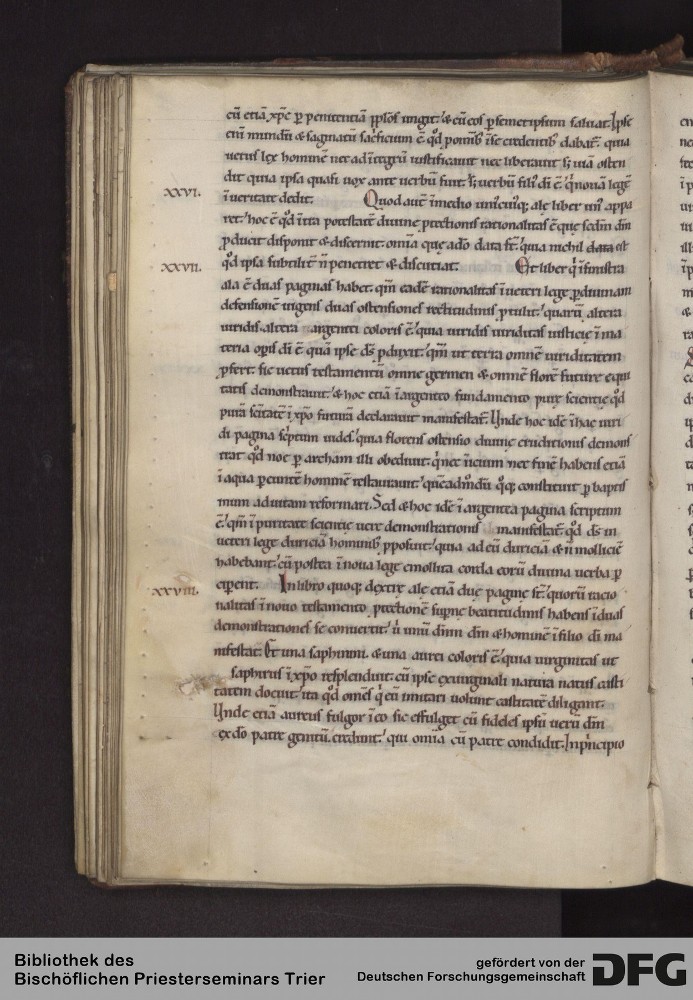 cū etiā xp̄c ꝑ penitentiā pplos ungit. & cū eos ꝑ semetipsum saluat. Ipse
eni mundū & saginatū sacrificium ē. qd̄ pomis ise credentib; dabat. quia
uetus lex hominē nec ad integrū iustificauit nec liberauit. s; uiā osten
dit. quia ipsa quasi uox ante uerbū fuit. s; uerbū fili di ē. q nouā legē
XXVI.
ī ueritate dedit. Quod autē ī medio uniuscuiq; ale liber un appa
ret. hoc ē qd̄ ī ita potestatē diuine ꝓtectionis rationalitas ē que scdm dm
ꝓducit disponit & discernit. omīa que a dō data st̄. quia nichil data est
XXVII.
qd̄ ipsa subtilit̄ n̄ penetret & discutiat. Et liber q̄ ī sinistra
ala ē duas paginas habet. qm̄ eadē rationalitas ī ueteri lege ꝓ diuinam
defensionē uigens duas ostensiones rectitudinis ꝓtulit. quarū altera
uiridis. altera argentei coloris ē. quia uiridis uiriditas iusticie ī ma
teria opis di ē quā ipse ds̄ pduxit. qm̄ ut terra omnē uiriditatem
ꝓfert. sic uetus testamentū omne germen & omnē florē future equi
tatis demonstrauit. & hoc etiā ī argenteo fundamento pure scientie qd̄
purā scitatē ī xpo futurā declarauit manifestat. Unde hoc idē ī hac uiri
di pagina scriptum uides. quia florens ostensio diuine eruditionis demons
trat qd̄ noe ꝑ archam illi obediuit. q nec initium nec finē habens etiā
ī aqua ꝑeuntē hominē restaurauit. quēadmodū qq; constituit ꝑ baptis
mum ad uitam reformari. Sed & hoc idē ī argentea pagina scriptum
ē. qm̄ ī puritate scientie uere demonstrationis manifestat qd̄ ds̄ in
ueteri lege duriciā hominib; pposuit. quia ad eū duriciā & n̄ molliciē
habebant. cū postea ī noua lege emollita corda eorū diuina uerba ꝑ
XXVIII.
ciperent. In libro quoq; dextre ale etiā due pagine st̄. quorū racio
nalitas ī nouo testamento ꝓtectionē supne beatitudinis habens ī duas
demonstrationes se conuertit. ū unū dīnm dm & hominē ī filio di ma
nifestat. Et una saphirini & una aurei coloris ē. quia uirginitas ut
saphirus ī xpo resplenduit. cū ipse ex uirginali natura natus casti
tatem docuit. ita qd̄ omēs q eū imitari uolunt castitatē diligant.
Unde etiā aureus fulgor ī eo sic effulget cū fideles ipsū uerū dm
ex dō patre genitū credunt. qui omīa cū patre condidit. In pncipio
Bibliothek des
Bischöflichen Priesterseminars Trier
gefördert von der
Deutschen Forschungsgemeinschaft
DFG